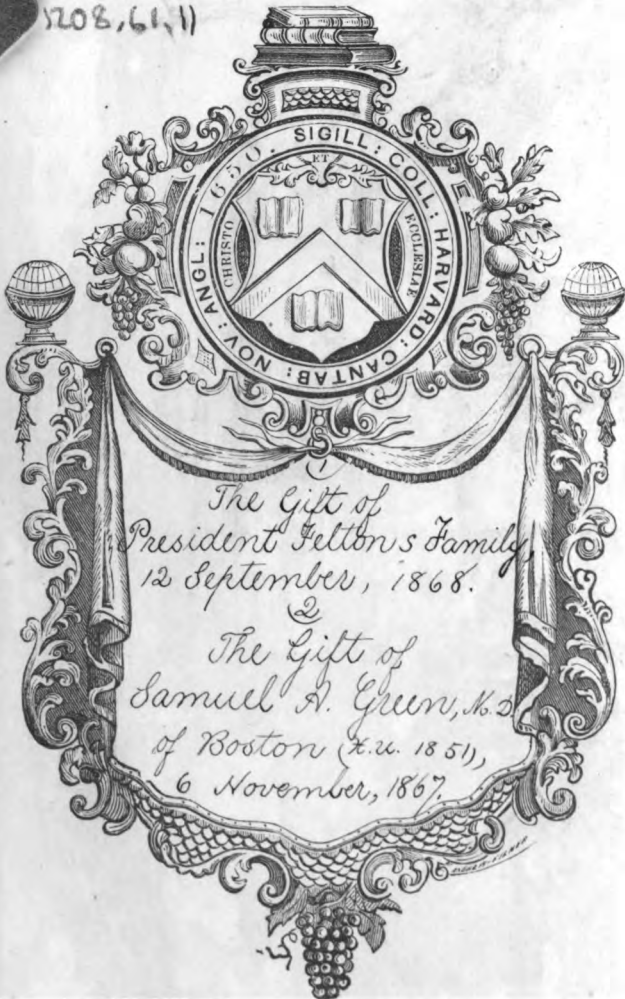 1208,61,11
SIGILL: COLL: HARVARD: CANTAB: NOV: ANGL: 1650.
ET
CHRISTO
ECCLESIAE
1
The Gift of
President Feltons Family,
12 September, 1868.
2
The Gift of
Samuel A. Green, M.D
of Boston (H.U. 1851),
6 November, 1867.